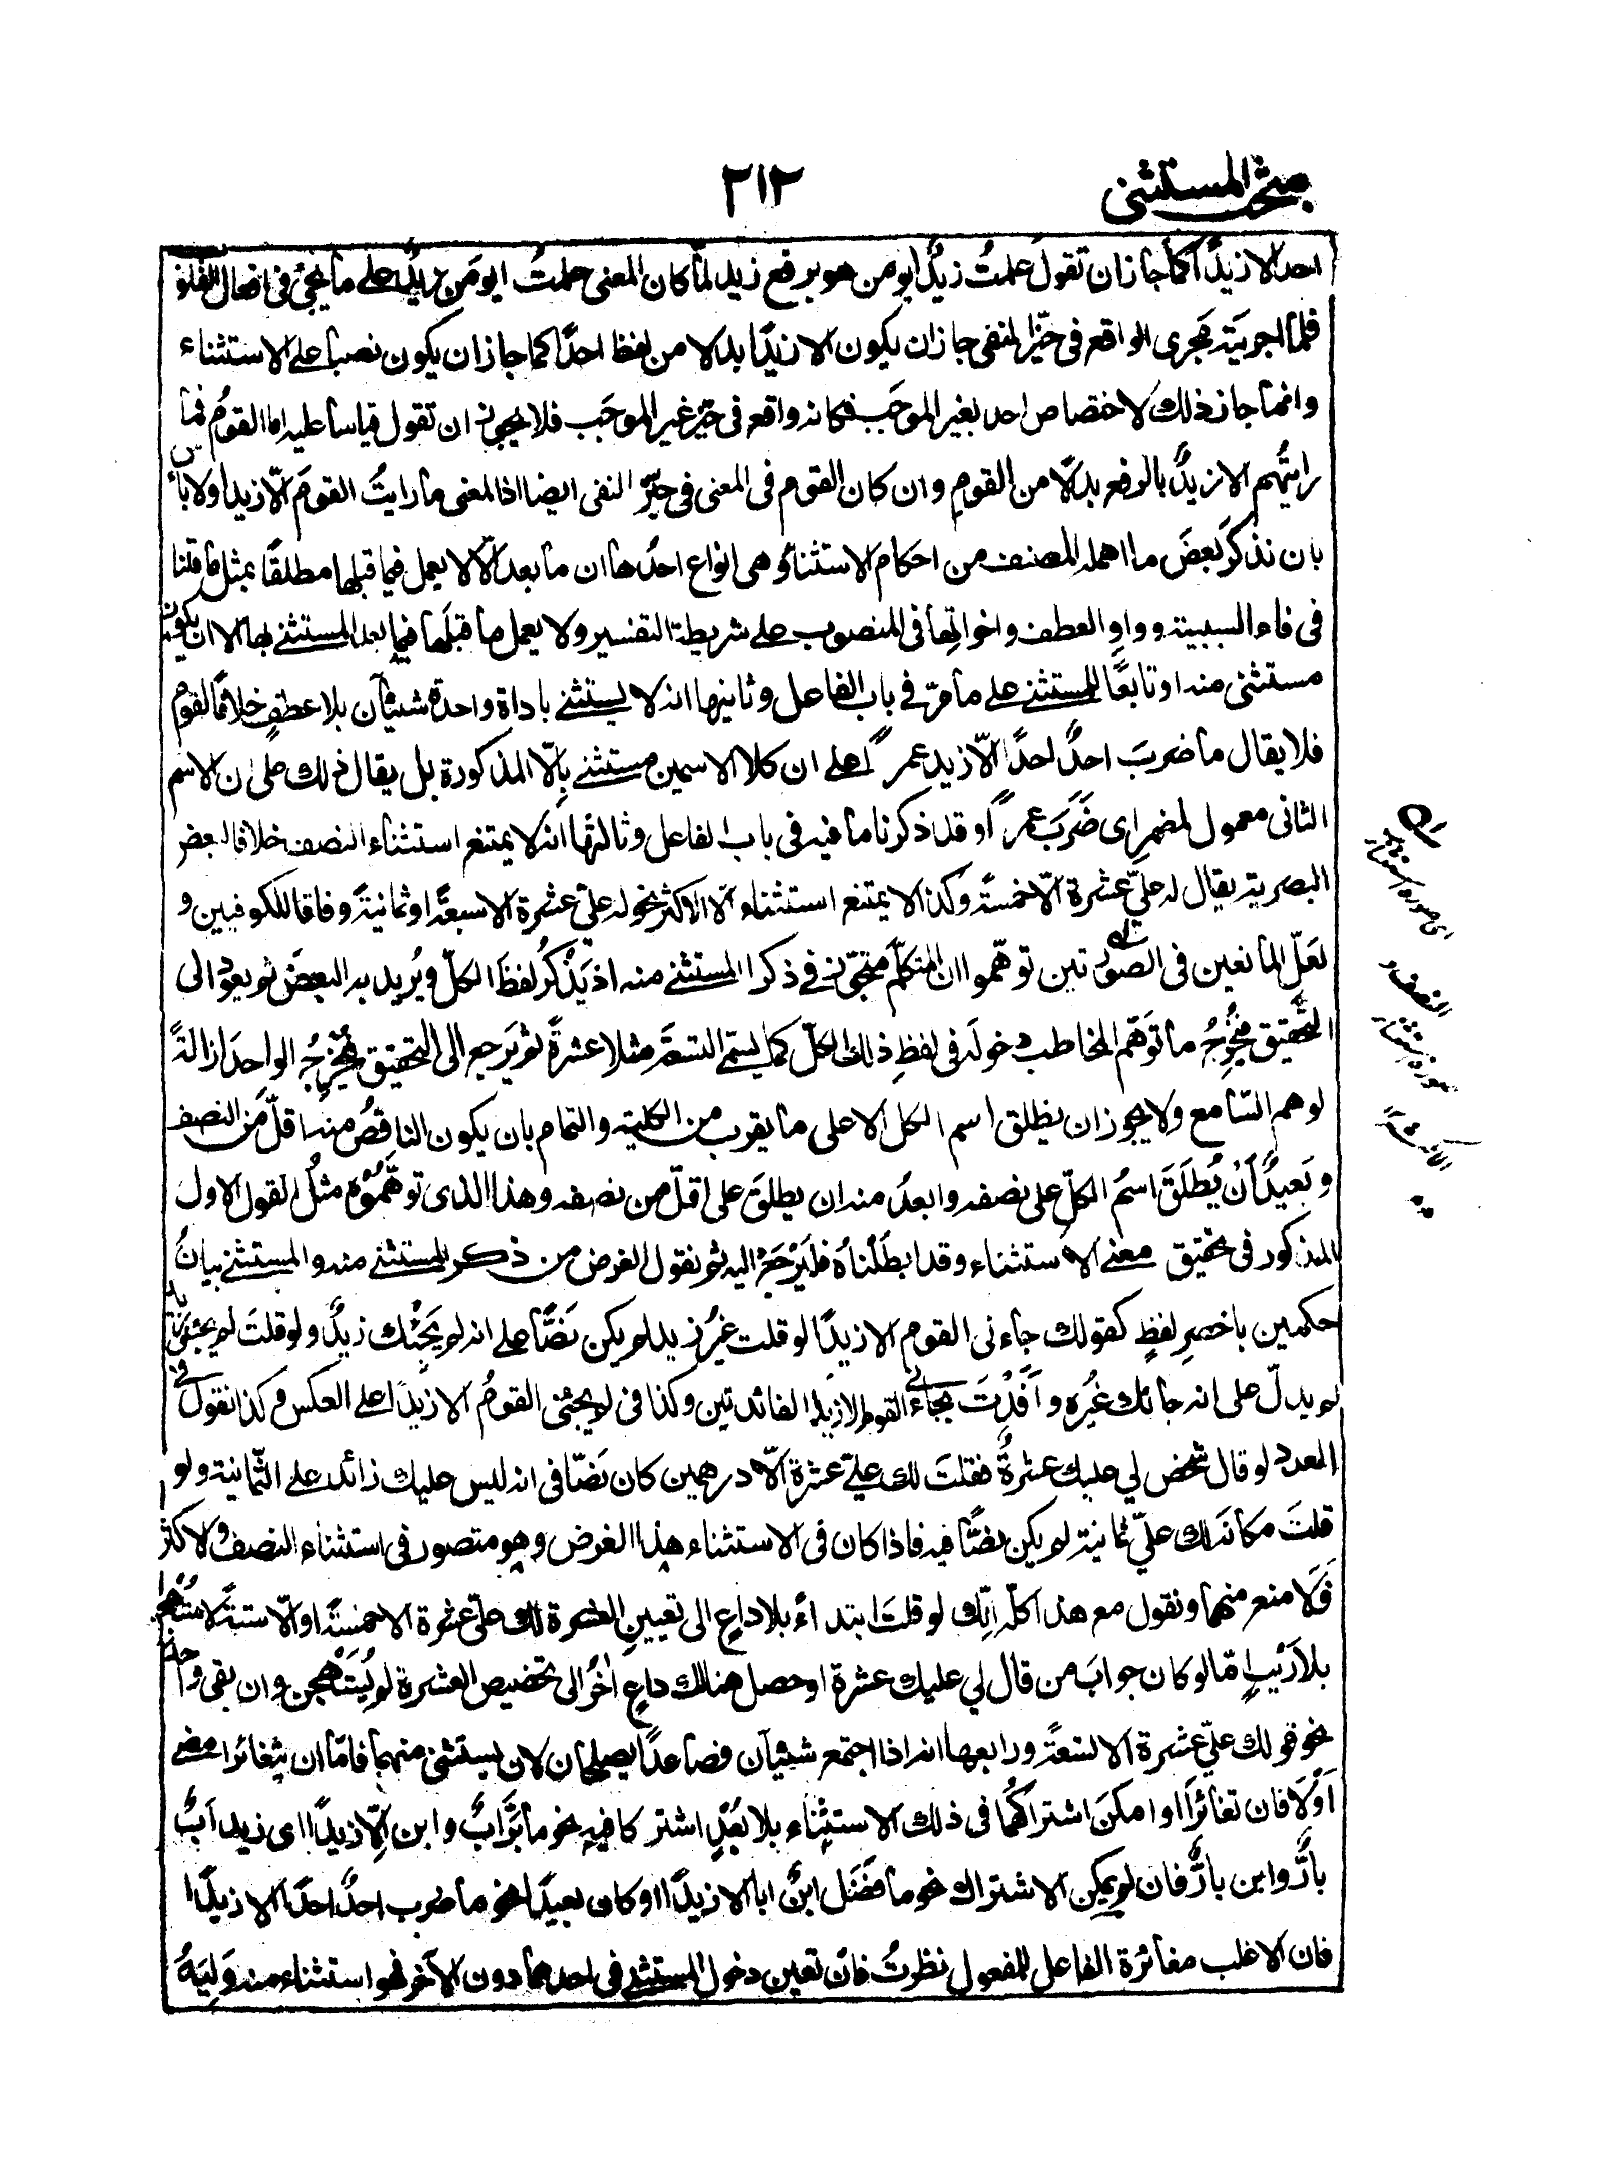 مبحث المستثنى
٢١٢
احد الا زيدًا كما جاز ان تقول علمتُ زيدٌ ابو من هو برفع زيد لمّا كان المعنى علمتُ ابو مَن زيدٌ على ما يجئ فى افعال القلوب
فلمّا اجريته مجرى الواقع فى حيّز المنفى جاز ان يكون الا زيدًا بدلا من لفظ احدًا كما جاز ان يكون نصبا على الاستثناء
وانما جاز ذلك لاختصاص احد بغير الموجَب فكانه واقع فى حيّز غير الموجَب فلا يجوز ان تقول قياسا عليه اما القومُ فما
رايتُهم الا زيدٌ بالرفع بدلًا من القومِ وان كان القوم فى المعنى فى حيّز النفى ايضا اذ المعنى ما رايتُ القومَ الّا زيدا ولا باس
بان نذكرَ بعضَ ما اهمله المصنف من احكام الاستثناء وهى انواع احدُها ان ما بعد الّا لا يعمل فيما قبلها مطلقًا بمثل ما قلنا
فى فاء السببية وواو العطف واخواتها فى المنصوب على شريطة التفسير ولا يعمل ما قبلَها فيما بعد المستثنى بها الا ان يكون
مستثنى منه او تابعًا للمستثنى على ما مرّ فى باب الفاعل وثانيها انه لا يستثنى باداة واحدة شيئان بلا عطفٍ خلافًا لقوم
فلا يقال ما ضرب احدٌ احدًا الّا زيد عمرًا على ان كلا الاسمين مستثنى بِالّا المذكورة بل يقال ذلك على ان الاسم
الثانى معمول لمضمر اى ضَرَبَ عمرًا وقد ذكرنا ما فيه فى باب الفاعل وثالثها انه لا يمتنع استثناء النصف خلافا لبعض
البصرية يقال له علىّ عشرة الّا خمسةً وكذا لا يمتنع استثناء الاكثر نحو له علىّ عشرة الا سبعةً او ثمانيةً وفاقا للكوفيين و
لعَلّ المانعين فى الصورتين توهّموا ان المتكلّم متجوّز فى ذكر المستثنى منه اذ يَذْكُرُ لفظَ الكلّ ويُريد به البعضَ ثم يعود الى
التحقيق مُخْرِجُ ما توهّم المخاطب دخولَه فى لفظِ ذلك الكلّ كما يسمّى التسعة مثلا عشرةً ثم يَرجع الى التحقيق فيُخرِجُ الواحدَ ازالةً
لوهم السّامع ولا يجوز ان يطلق اسم الكل الا على ما يقرب من الكلية والتمام بان يكون الناقصُ منه اقلّ من النصف
وبَعيدٌ اَنْ يُطلَقَ اسمُ الكلِّ على نصفه وابعدَ منه ان يطلقَ على اقلّ من نصفه وهذا الذى توهّموْه مثلُ القول الاول
المذكور فى تحقيق معنى الاستثناء وقد ابطلناه فليَرْجَعْ اليه ثم نقول الغرض من ذكر المستثنى منه والمستثنى بيانُ
حكمين باخصرِ لفظٍ كقولك جاءنى القوم الا زيدًا لو قلت غيرُ زيد لم يكن نَصًّا على انه لم يَجِئْك زيدٌ ولو قلتَ لم يجئنى زيد
لم يدلّ على انه جائك غيرُه واَفَدْتَ بجاءنى القوم الا زيدًا الفائدتين وكذا فى لم يجئنى القومُ الا زيدًا على العكس وكذا نقول فى
العدد لو قال شخص لي عليك عشرةٌ فقلتَ لك علىّ عشرة الّا درهمين كان نصّا فى انه ليس عليك زائد على الثمانية ولو
قلتَ مكانَه لك علىّ ثمانية لم يكن نصًّا فيه فاذا كان فى الاستثناء هذا الغرض وهو متصور فى استثناء النصف والاكثر
فَلا منع منهما ونقول مع هذا كلّه انّك لو قلتَ ابتداءً بلا داعٍ الى تعيينِ العشرة لك علىّ عشرة الا خمسةً او الّا ستةً لاستُهجِن
بلا رَيْبٍ امّا لو كان جوابَ من قال لي عليك عشرة او حصل هنالك داعٍ اٰخرُ الى تخصيص العشرة لم يُستَهجن وان بقى واحد
نحو قولك علىّ عشرة الا تسعةً ورابعها انه اذا اجتمع شيئآن فصاعدًا يصلحان لان يستثنى منهما فامّا ان يتغائرا معنى
اَوْ لا فان تغائرا وامكنَ اشتراكُهما فى ذلك الاستثناء بلا بُعْدٍ اشتركا فيه نحو ما برَّ ابٌ وابن اِلّا زيدًا اى زيد ابٌ
بارٌّ وابن بارٌّ فان لم يمكن الاشتراك نحو ما فضَل ابنٌ ابا الا زيدًا او كان بعيدًا نحو ما ضرب احدٌ احدًا الا زيدًا
فان الاغلب مغائرة الفاعل للمفعول نظرتَ فانْ تعين دخول المستثنى فى احدهما دون الاٰخر فهو استثناء منه وَلِيَهُ
اى صورة استثناء
النصف و
صورة استثناء
الاكثر